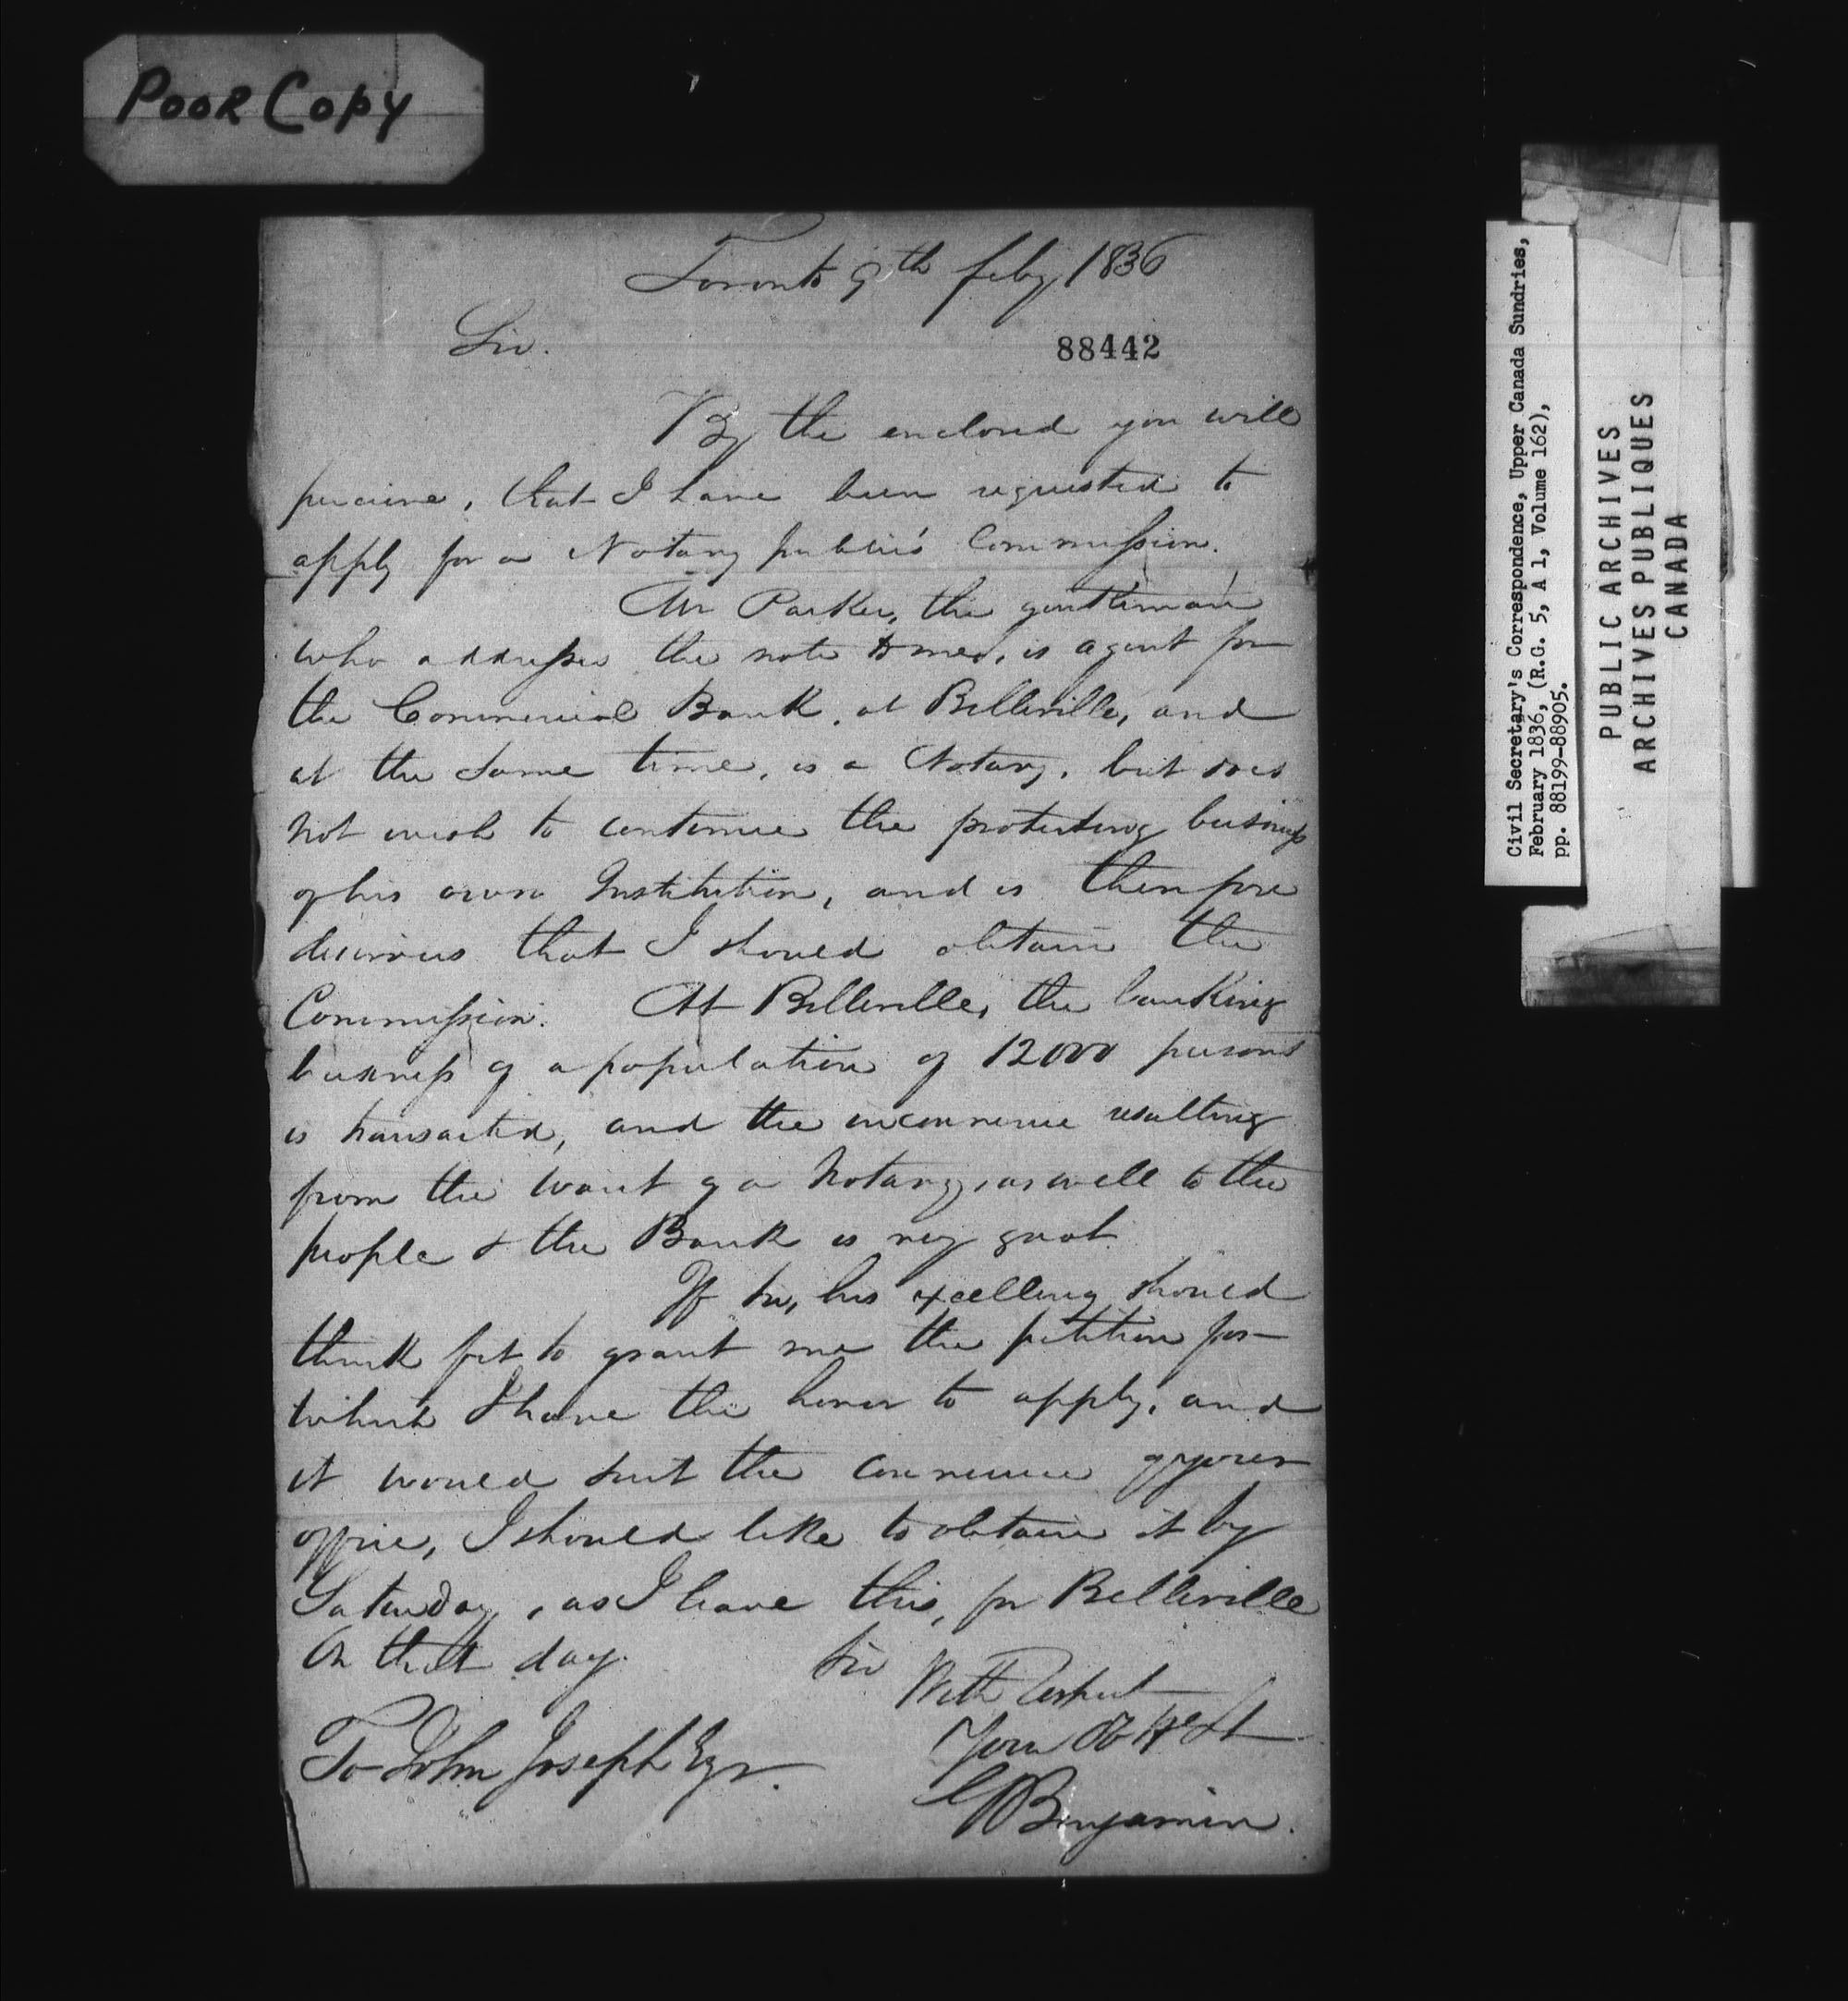 POOR COPY
Toronto 9th feby 1836
Sir.
88442
By the enclosed you will
perceive, that I have been requested to
apply for a Notary public's Commission.
Mr Parker, the gentleman
who addresses the note to me, is agent for
the Commercial Bank, at Belleville, and
at the same time, is a Notary, but does
not wish to continue the protesting business
of his own Institution, and is therefore
desirous that I should obtain the
Commission. At Belleville, the banking
business of a population of 12000 persons
is transacted, and the inconvenience resulting
from the want of a Notary, as well to the
people & the Bank is very great.
If Sir, his excellency should
think fit to grant me the petition for
which I have the honor to apply, and
it would suit the convenience of your
office, I should like to obtain it by
Saturday, as I leave this, for Belleville
on that day. Sir
With Respect
Your Ob H St
To John Joseph Esqr.
G Benjamin.
Civil Secretary's Correspondence, Upper Canada Sundries,
February 1836, (R.G. 5, A 1, Volume 162),
pp. 88199-88905.
PUBLIC ARCHIVES
ARCHIVES PUBLIQUES
CANADA